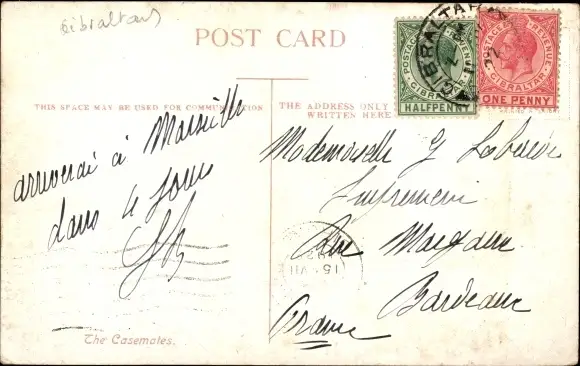 Gibraltar
POST CARD
THIS SPACE MAY BE USED FOR COMMUNICATION
THE ADDRESS ONLY
WRITTEN HERE
POSTAGE & REVENUE
GIBRALTAR
HALFPENNY
POSTAGE & REVENUE
GIBRALTAR
ONE PENNY
GIBRALTAR
arriverai à Marseille
dans 4 jours
Mademoiselle G
Rue
Bordeaux
France
15 VII
The Casemates.